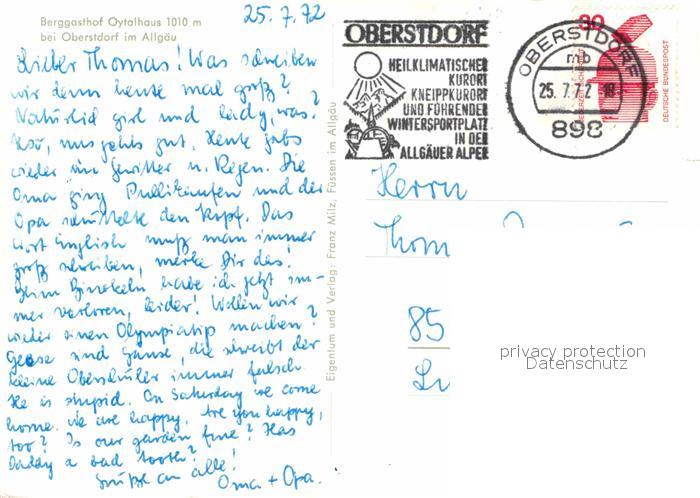 Berggasthof Oytalhaus 1010 m
bei Oberstdorf im Allgäu
25.7.72
Lieber Thomas! Was schreiben
wir denn heute mal groß?
Natürlich girl und lady, was?
Also, uns gehts gut. Heute gabs
wieder ein Gewitter u. Regen. Die
Oma ging Pullikaufen und der
Opa schüttelte den Kopf. Das
Wort Englisch muß man immer
groß schreiben, merke Dir das!
Beim Binokeln habe ich jetzt im-
mer verloren, leider! Wollen wir
wieder einen Olympiatip machen?
Geese sind Gänse, die schreibt der
kleine Oberschüler immer falsch.
He is stupid. On Saturday we come
home. We are happy. Are you happy,
too? Is our garden fine? Has
Daddy a bad tooth?
Grüße an alle!
Oma + Opa.
Eigentum und Verlag: Franz Milz, Füssen im Allgäu
OBERSTDORF
HEILKLIMATISCHER
KURORT
KNEIPPKURORT
UND FÜHRENDER
WINTERSPORTPLATZ
IN DER
ALLGÄUER ALPEN
OBERSTDORF
mb
25.7.72-18
898
30
JEDERZEIT SICHERHEIT
DEUTSCHE BUNDESPOST
Herrn
Thom
85
privacy protection
Datenschutz